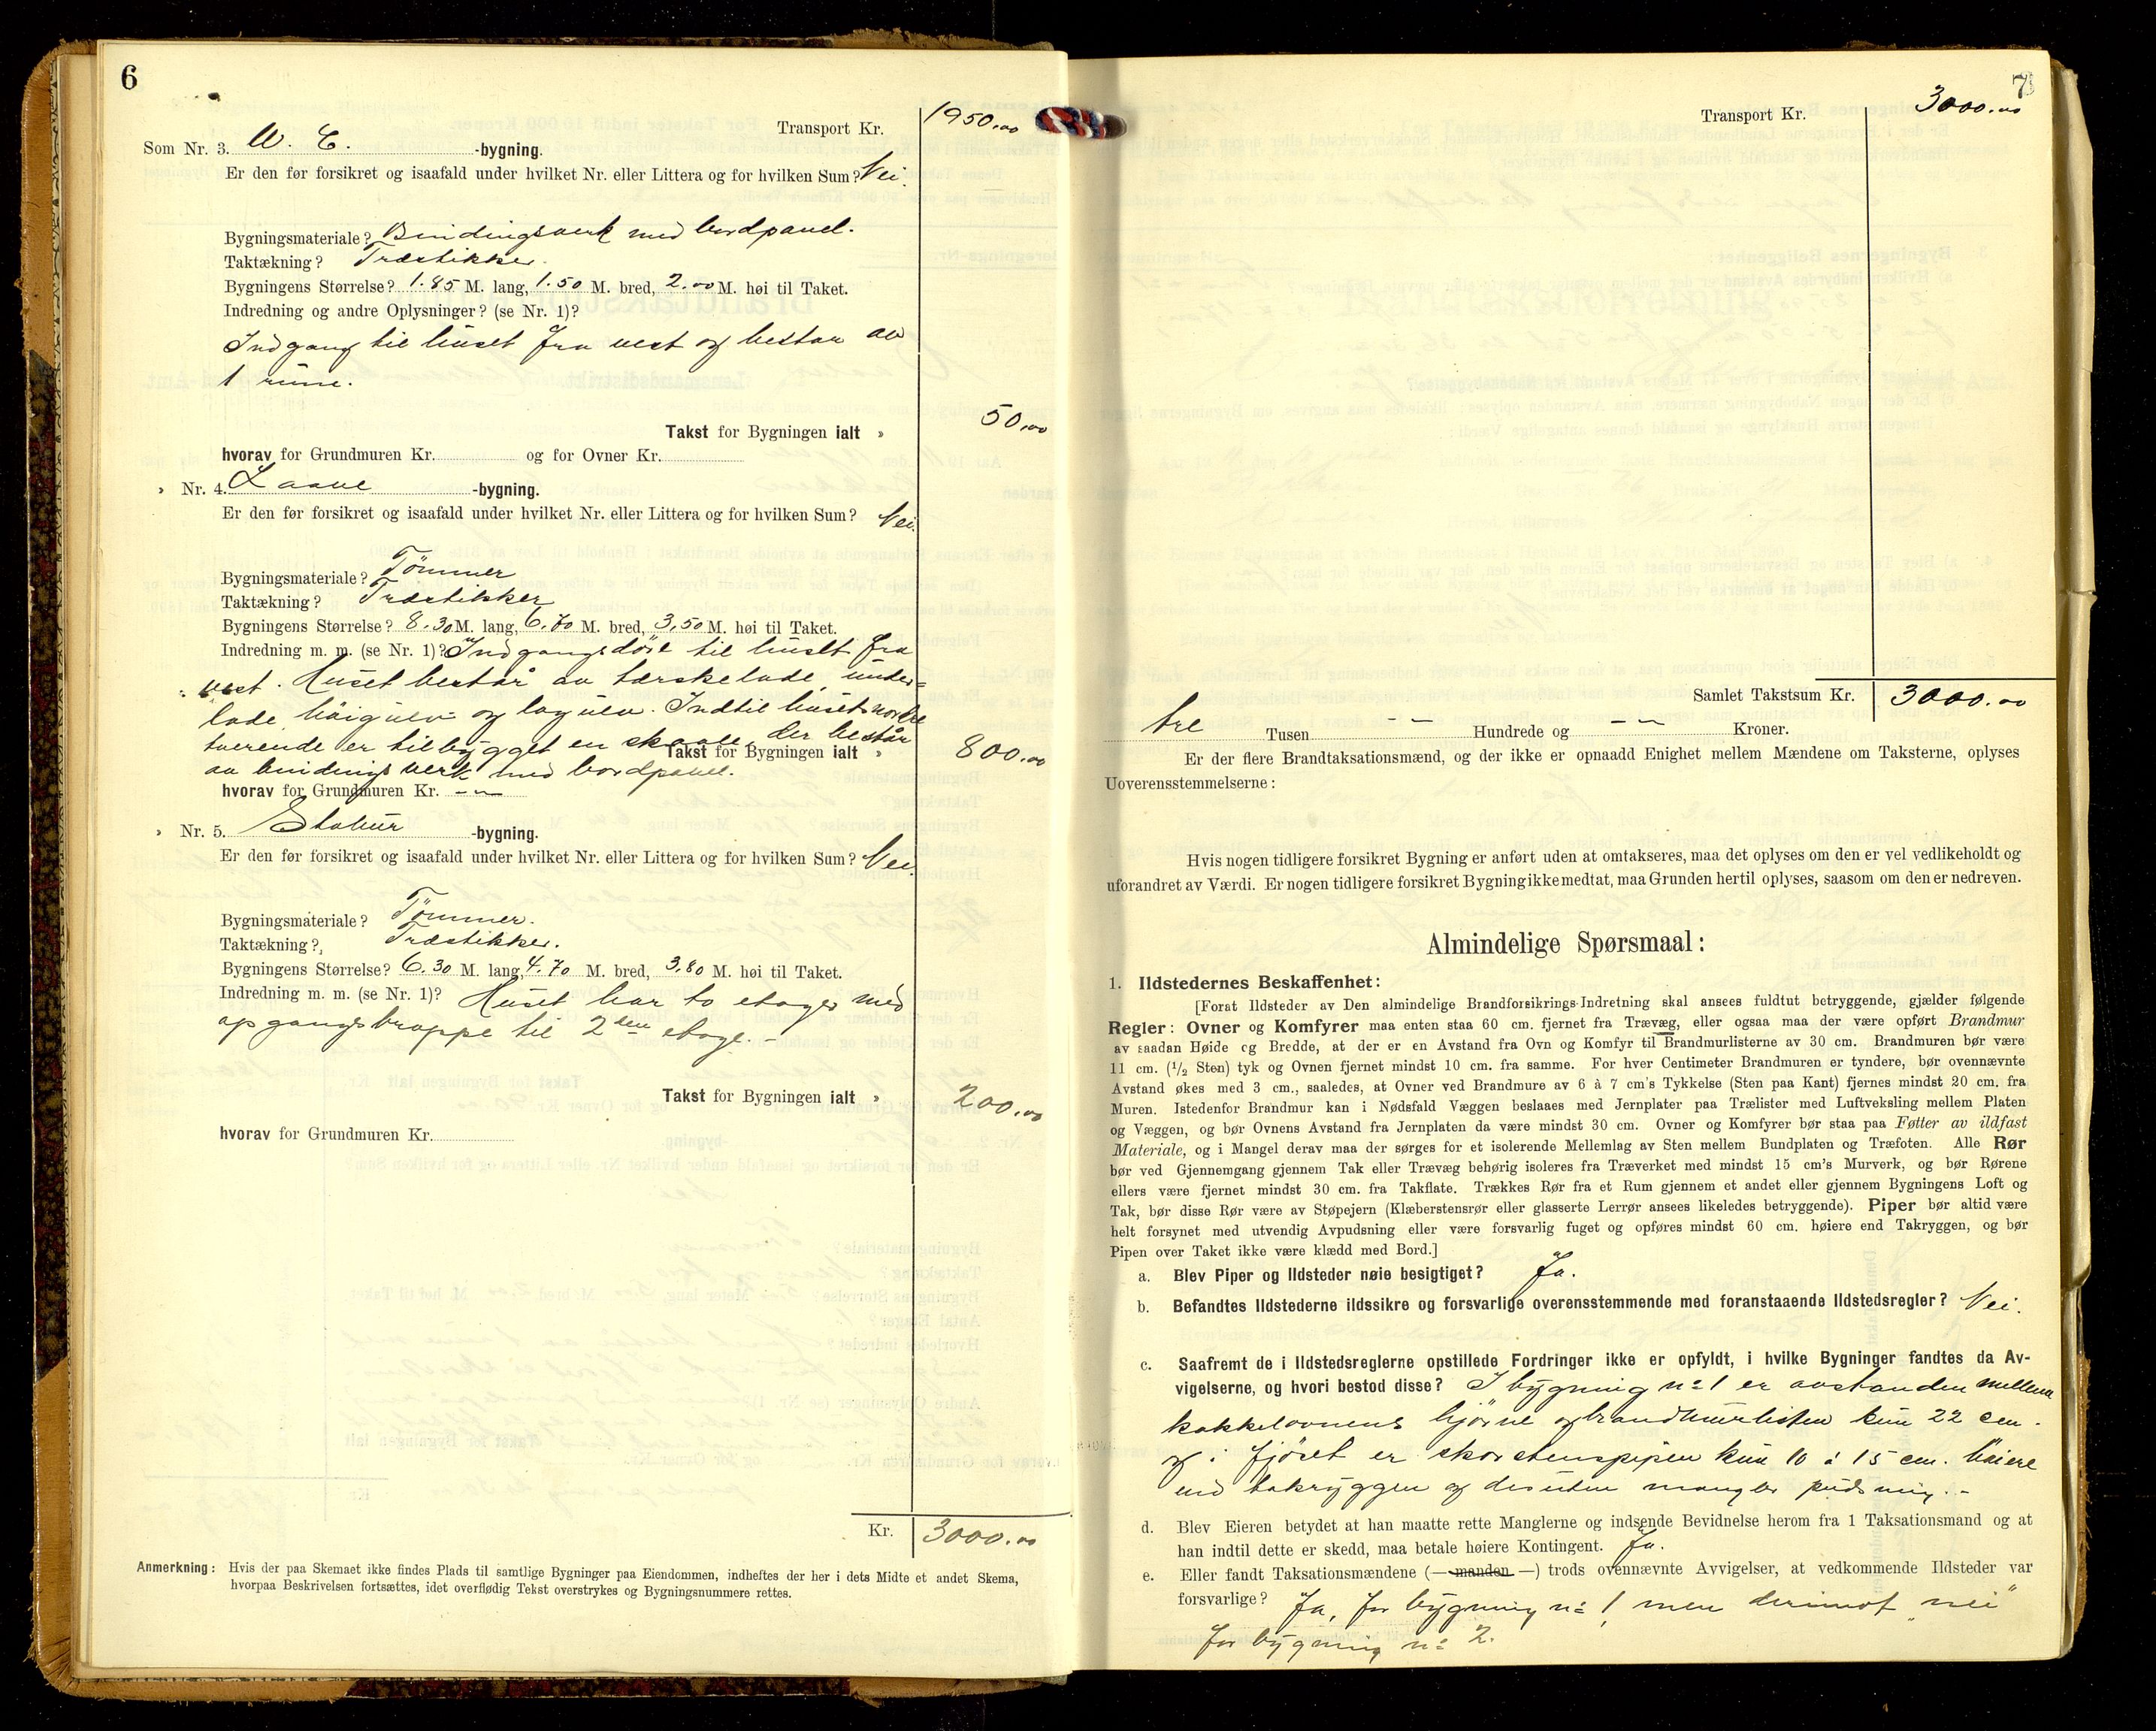 6
Transport Kr. 1950.00
Som Nr. 3. W. C. -bygning.
Er den før forsikret og isaafald under hvilket Nr. eller Littera og for hvilken Sum? Nei.
Bygningsmateriale? Bindingsverk med bordpanel.
Taktækning? Træstikker.
Bygningens Størrelse? 1.85 M. lang, 1.50 M. bred, 2.00 M. høi til Taket.
Indredning og andre Oplysninger? (se Nr. 1)?
Indgang til huset fra vest og bestaar av
1 rum.
Takst for Bygningen ialt „ 50.00
hvorav for Grundmuren Kr. og for Ovner Kr.
„ Nr. 4. Laave -bygning.
Er den før forsikret og isaafald under hvilket Nr. eller Littera og for hvilken Sum? Nei.
Bygningsmateriale? Tömmer
Taktækning? Træstikker
Bygningens Størrelse? 8.30 M. lang, 6.70 M. bred, 3.50 M. høi til Taket.
Indredning m. m. (se Nr. 1)? Indgangsdör til huset fra
vest. Huset består av tærskelade, under-
lade höigulv og logulv. Indtil husets nordre
tverende er tilbygget en skaale, der består
Takst for Bygningen ialt „ 800.00
av bindingsverk med bordpanel.
hvorav for Grundmuren Kr. - „ -
„ Nr. 5. Stabur -bygning.
Er den før forsikret og isaafald under hvilket Nr. eller Littera og for hvilken Sum? Nei.
Bygningsmateriale? Tömmer.
Taktækning? Træstikker.
Bygningens Størrelse? 6.30 M. lang, 4.70 M. bred, 3.80 M. høi til Taket.
Indredning m. m. (se Nr. 1)? Huset har to etager med
opgangstrappe til 2den etage. -
Takst for Bygningen ialt „ 200.00
hvorav for Grundmuren Kr.
Kr. 3000.00
Anmerkning: Hvis der paa Skemaet ikke findes Plads til samtlige Bygninger paa Eiendommen, indheftes der her i dets Midte et andet Skema,
hvorpaa Beskrivelsen fortsættes, idet overflødig Tekst overstrykes og Bygningsnummere rettes.
7
Transport Kr. 3000.00
Samlet Takstsum Kr. 3000.00
tre Tusen - „ - Hundrede og - „ - Kroner.
Er der flere Brandtaksationsmænd, og der ikke er opnaadd Enighet mellem Mændene om Taksterne, oplyses
Uoverensstemmelserne:
Hvis nogen tidligere forsikret Bygning er anført uden at omtakseres, maa det oplyses om den er vel vedlikeholdt og
uforandret av Værdi. Er nogen tidligere forsikret Bygning ikke medtat, maa Grunden hertil oplyses, saasom om den er nedreven.
Almindelige Spørsmaal:
1. Ildstedernes Beskaffenhet:
[Forat Ildsteder av Den almindelige Brandforsikrings-Indretning skal ansees fuldtut betryggende, gjælder følgende
Regler: Ovner og Komfyrer maa enten staa 60 cm. fjernet fra Trævæg, eller ogsaa maa der være opført Brandmur
av saadan Høide og Bredde, at der er en Avstand fra Ovn og Komfyr til Brandmurlisterne av 30 cm. Brandmuren bør være
11 cm. (1/2 Sten) tyk og Ovnen fjernet mindst 10 cm. fra samme. For hver Centimeter Brandmuren er tyndere, bør ovennævnte
Avstand økes med 3 cm., saaledes, at Ovner ved Brandmure av 6 à 7 cm's Tykkelse (Sten paa Kant) fjernes mindst 20 cm. fra
Muren. Istedenfor Brandmur kan i Nødsfald Væggen beslaaes med Jernplater paa Trælister med Luftveksling mellem Platen
og Væggen, og bør Ovnens Avstand fra Jernplaten da være mindst 30 cm. Ovner og Komfyrer bør staa paa Føtter av ildfast
Materiale, og i Mangel derav maa der sørges for et isolerende Mellemlag av Sten mellem Bundplaten og Træfoten. Alle Rør
bør ved Gjennemgang gjennem Tak eller Trævæg behørig isoleres fra Træverket med mindst 15 cm's Murverk, og bør Rørene
ellers være fjernet mindst 30 cm. fra Takflate. Trækkes Rør fra et Rum gjennem et andet eller gjennem Bygningens Loft og
Tak, bør disse Rør være av Støpejern (Klæberstensrør eller glasserte Lerrør ansees likeledes betryggende). Piper bør altid være
helt forsynet med utvendig Avpudsning eller være forsvarlig fuget og opføres mindst 60 cm. høiere end Takryggen, og bør
Pipen over Taket ikke være klædd med Bord.]
a. Blev Piper og Ildsteder nøie besigtiget? Ja.
b. Befandtes Ildstederne ildssikre og forsvarlige overensstemmende med foranstaaende Ildstedsregler? Nei.
c. Saafremt de i Ildstedsreglerne opstillede Fordringer ikke er opfyldt, i hvilke Bygninger fandtes da Av-
vigelserne, og hvori bestod disse? I bygning no 1 er avstanden mellem
kakkelovnens hjörne og brandmurlisten kun 22 cm.
og i fjöset er skorstenspipen kun 10 à 15 cm. höiere
end takryggen og desuten mangler pudsning. -
d. Blev Eieren betydet at han maatte rette Manglerne og indsende Bevidnelse herom fra 1 Taksationsmand og at
han indtil dette er skedd, maa betale høiere Kontingent. Ja.
e. Eller fandt Taksationsmændene (— manden —) trods ovennævnte Avvigelser, at vedkommende Ildsteder var
forsvarlige? Ja, for bygning no 1, men derimot „nei"
for bygning no 2.